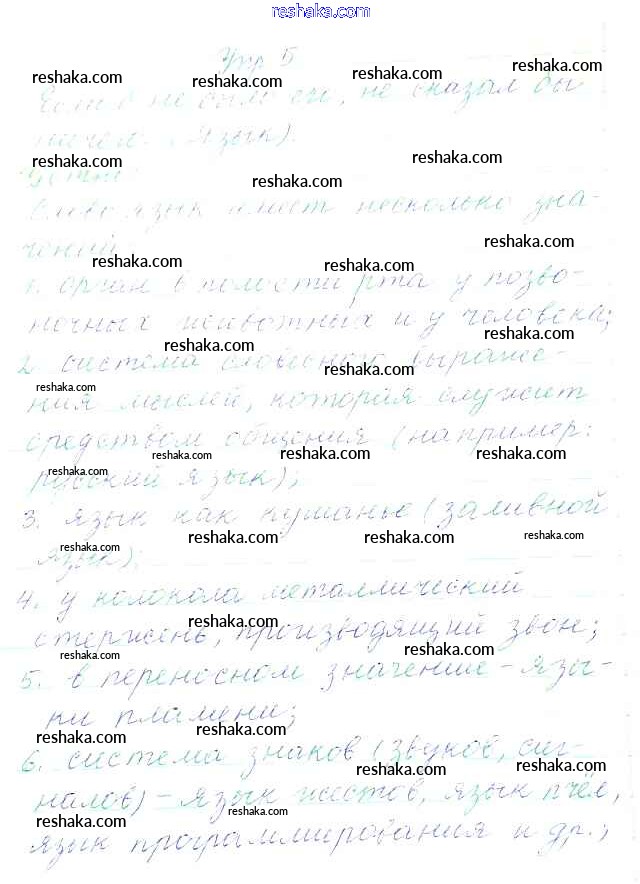 reshaka.com
Упр 5
reshaka.com reshaka.com reshaka.com reshaka.com
Если б не было его, не сказал бы
ничего. (Язык).
reshaka.com reshaka.com
reshaka.com
Слово язык имеет несколько зна-
чений:
reshaka.com
reshaka.com reshaka.com
1. орган в полости рта у позво-
ночных животных и у человека;
reshaka.com reshaka.com
2. система словесного выраже-
reshaka.com reshaka.com
ния мыслей, которая служит
средством общения (например:
reshaka.com reshaka.com reshaka.com reshaka.com
русский язык);
3. язык как кушанье (заливной
reshaka.com reshaka.com reshaka.com reshaka.com
язык);
4. у колокола металлический
стержень, производящий звон;
reshaka.com
reshaka.com reshaka.com
5. в переносном значение - язы-
ки пламени;
reshaka.com reshaka.com
6. система знаков (звуков, сиг-
reshaka.com reshaka.com
налов) - язык жестов, язык пчёл,
reshaka.com reshaka.com
язык программирования и др.;